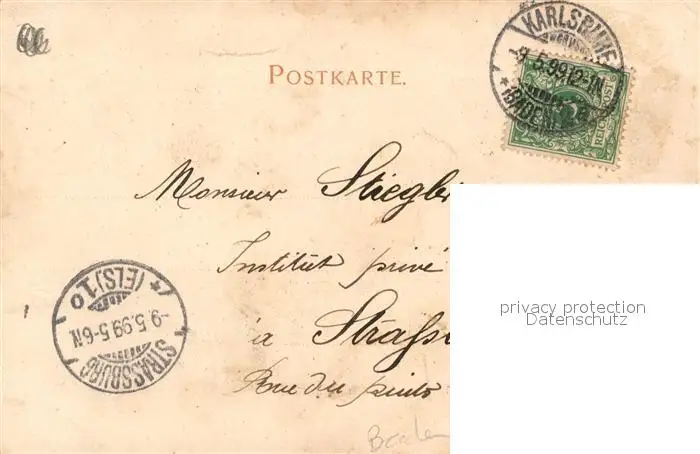 KARLSRUHE
-9.5.99.12-1N.
* (BADEN)
REICHSPOST
POSTKARTE.
Monsieur Stiegl
Institut privé
à Strass
Rue du puits
STRASSBURG
-9.5.99.5-6N
* (ELS) 1 o
Baden
privacy protection
Datenschutz